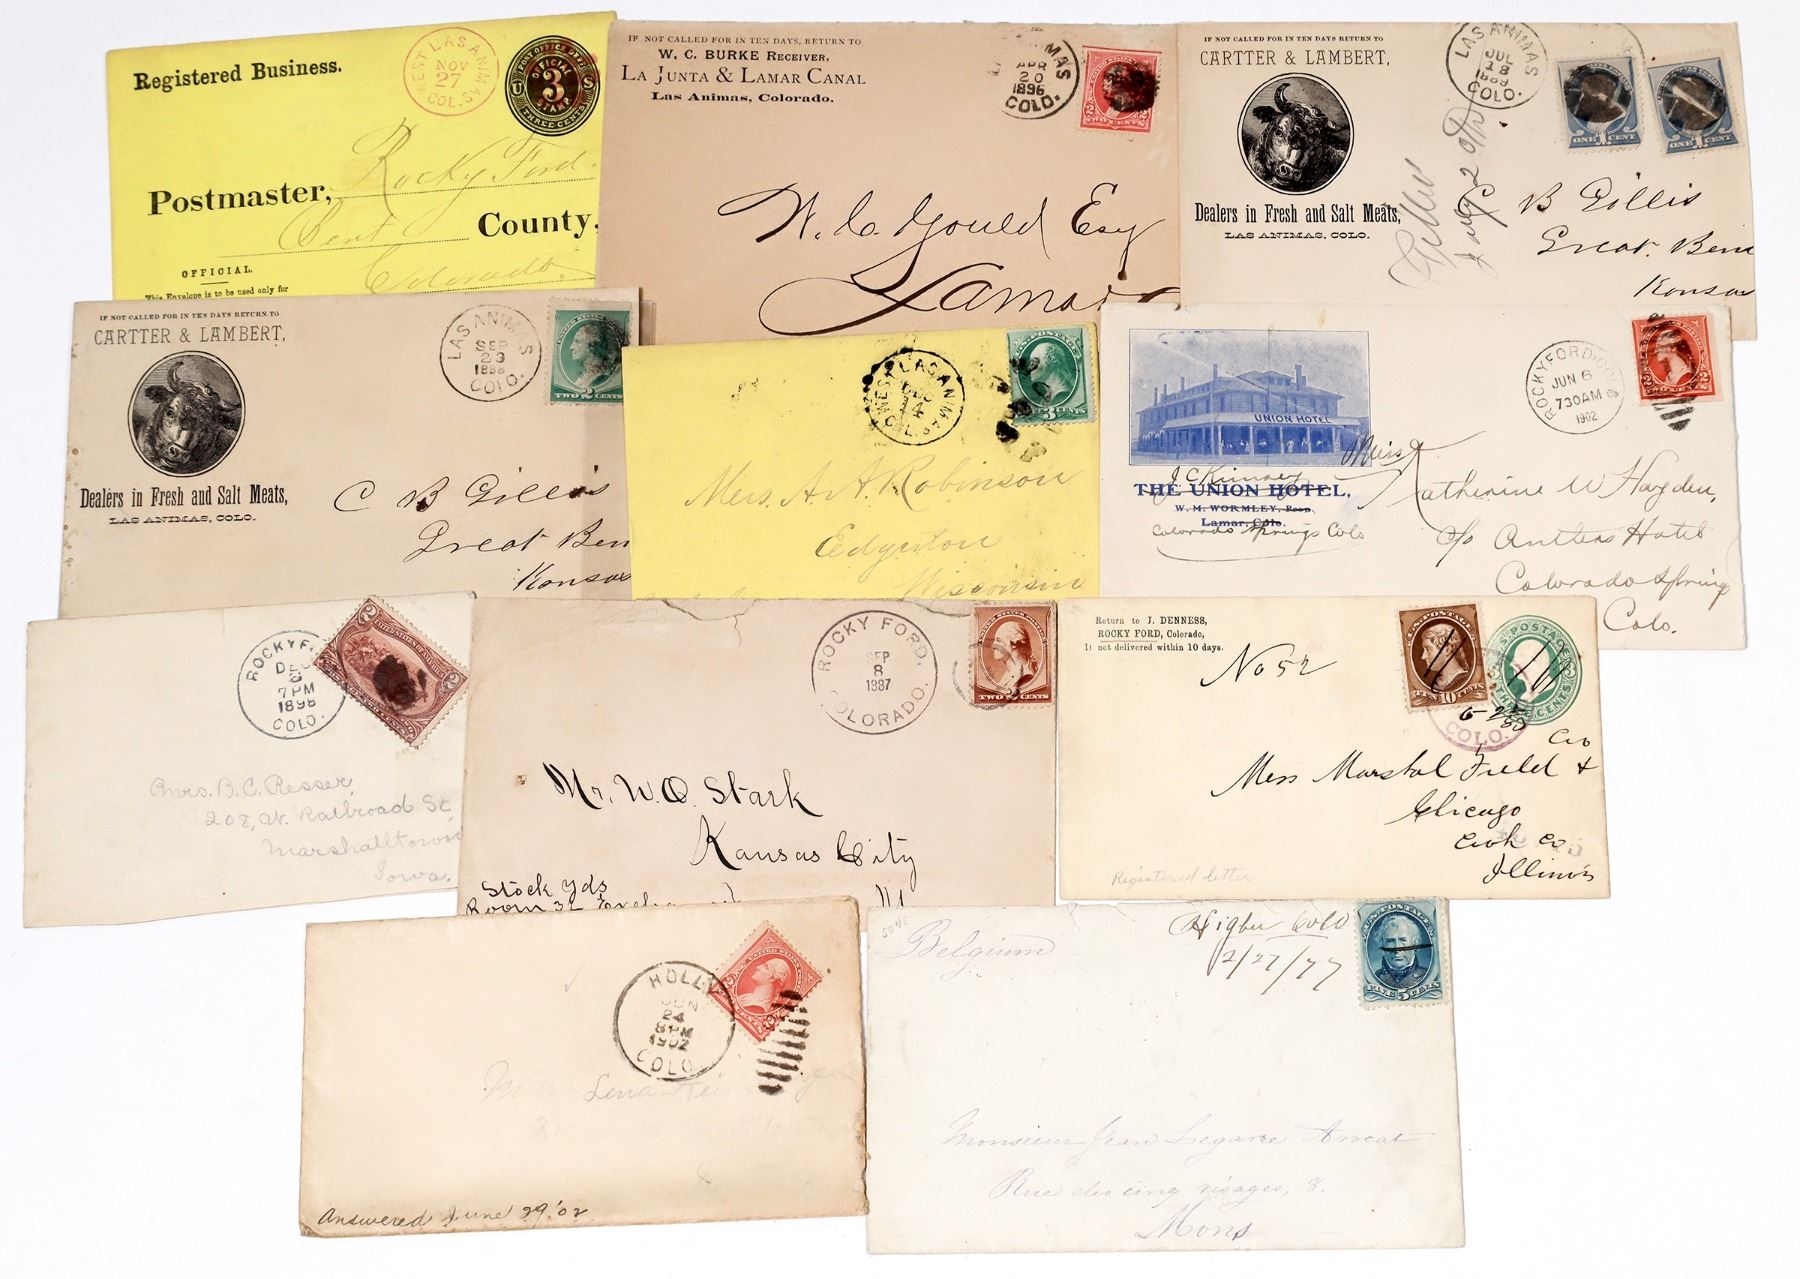 Registered Business.
WEST LAS ANIMAS
NOV
27
COL.
POST OFFICE DEPT
OFFICIAL
3
STAMP
U S
THREE CENTS
Rocky Ford
Postmaster,
Bent County,
Colorado
OFFICIAL.
This Envelope is to be used only for
IF NOT CALLED FOR IN TEN DAYS, RETURN TO
W. C. BURKE RECEIVER,
LA JUNTA & LAMAR CANAL
Las Animas, Colorado.
APR
20
1896
COLO.
2 TWO CENTS 2
W. C. Gould Esq
Lamar
IF NOT CALLED FOR IN TEN DAYS RETURN TO
CARTTER & LAMBERT,
Dealers in Fresh and Salt Meats,
LAS ANIMAS, COLO.
LAS ANIMAS
JUL
18
1889
COLO.
ONE 1 CENT
ONE 1 CENT
C B Gillis
Great Ben
Kansas
IF NOT CALLED FOR IN TEN DAYS RETURN TO
CARTTER & LAMBERT,
Dealers in Fresh and Salt Meats,
LAS ANIMAS, COLO.
LAS ANIMAS
SEP
23
1888
COLO.
TWO 2 CENTS
C B Gillis
Great Ben
Kansas
WEST LAS ANIMAS
COL.
3 CENTS
Mrs. A. A. Robinson
Edgerton
Wisconsin
UNION HOTEL
J C Kinney
THE UNION HOTEL,
W. M. WORMLEY, Prop.
Lamar, Colo.
Colorado Springs Colo
ROCKYFORD, COLO
JUN 6
730AM
1902
Miss
Katherine W Hayden,
c/o Antlers Hotel
Colorado Springs
Colo.
ROCKYFO
DEC
8
7PM
1898
COLO.
2
2
Mrs. B. C. Resser,
208, W. Railroad St,
Marshalltown
Iowa.
ROCKY FORD,
SEP
8
1887
COLORADO.
TWO CENTS
Mr. W. O. Stark
Kansas City
Stock Yds
Room 32
Return to J. DENNESS,
ROCKY FORD, Colorado,
If not delivered within 10 days.
No 52
10
U.S. POSTAGE
CENTS
COLO.
Mess Marshal Field &
Co
Chicago
Cook Co
Illinois
Registered letter
HOLLY
JUN
24
8PM
1902
COLO.
Lena
Answered June 29.'02
Belgium
Higbee Colo
2/27/77
FIVE 5 CENTS
Monsieur Jean Legarie Avocat
Rue des cinq visages, 8.
Mons